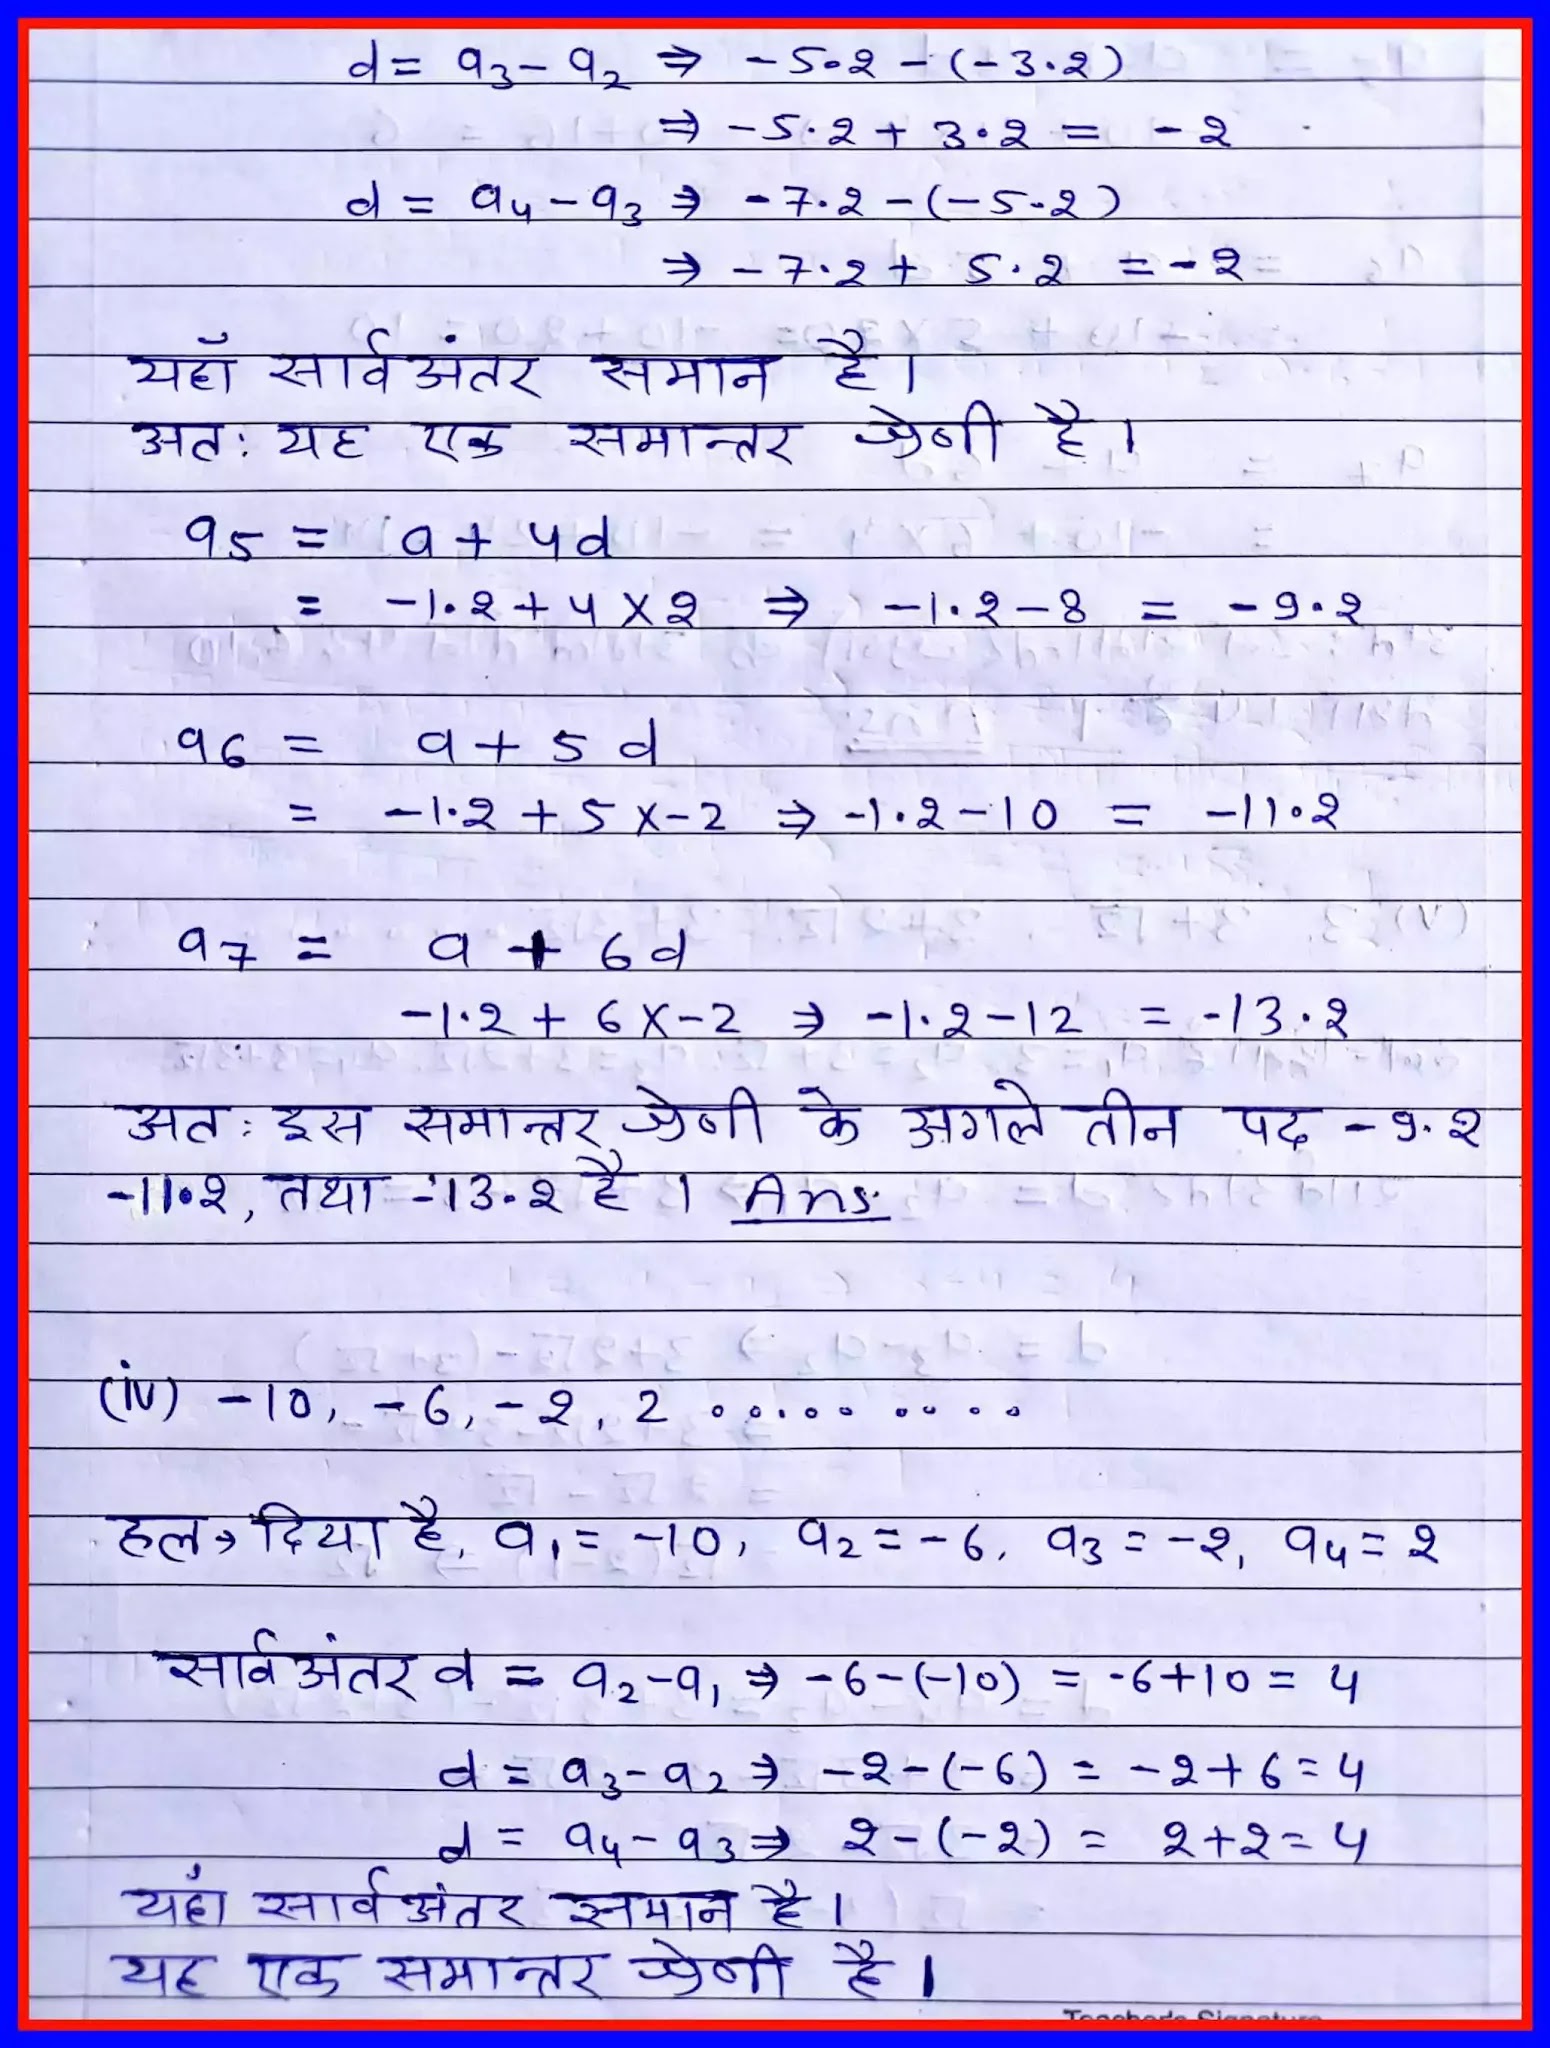 d = a3 - a2 ⇒ -5.2 - (-3.2)
⇒ -5.2 + 3.2 = -2
d = a4 - a3 ⇒ -7.2 - (-5.2)
⇒ -7.2 + 5.2 = -2
यहाँ सार्व अंतर समान है।
अत: यह एक समान्तर श्रेणी है।
a5 = a + 4d
= -1.2 + 4 × 2 ⇒ -1.2 - 8 = -9.2
a6 = a + 5d
= -1.2 + 5 × -2 ⇒ -1.2 - 10 = -11.2
a7 = a + 6d
-1.2 + 6 × -2 ⇒ -1.2 - 12 = -13.2
अत: इस समान्तर श्रेणी के अगले तीन पद -9.2
-11.2, तथा -13.2 है। Ans.
(iv) -10, -6, -2, 2 ..........
हल→ दिया है, a1 = -10, a2 = -6, a3 = -2, a4 = 2
सार्व अंतर d = a2 - a1 ⇒ -6 - (-10) = -6 + 10 = 4
d = a3 - a2 ⇒ -2 - (-6) = -2 + 6 = 4
d = a4 - a3 ⇒ 2 - (-2) = 2 + 2 = 4
यहाँ सार्व अंतर समान है।
यह एक समान्तर श्रेणी है।
Teacher's Signature